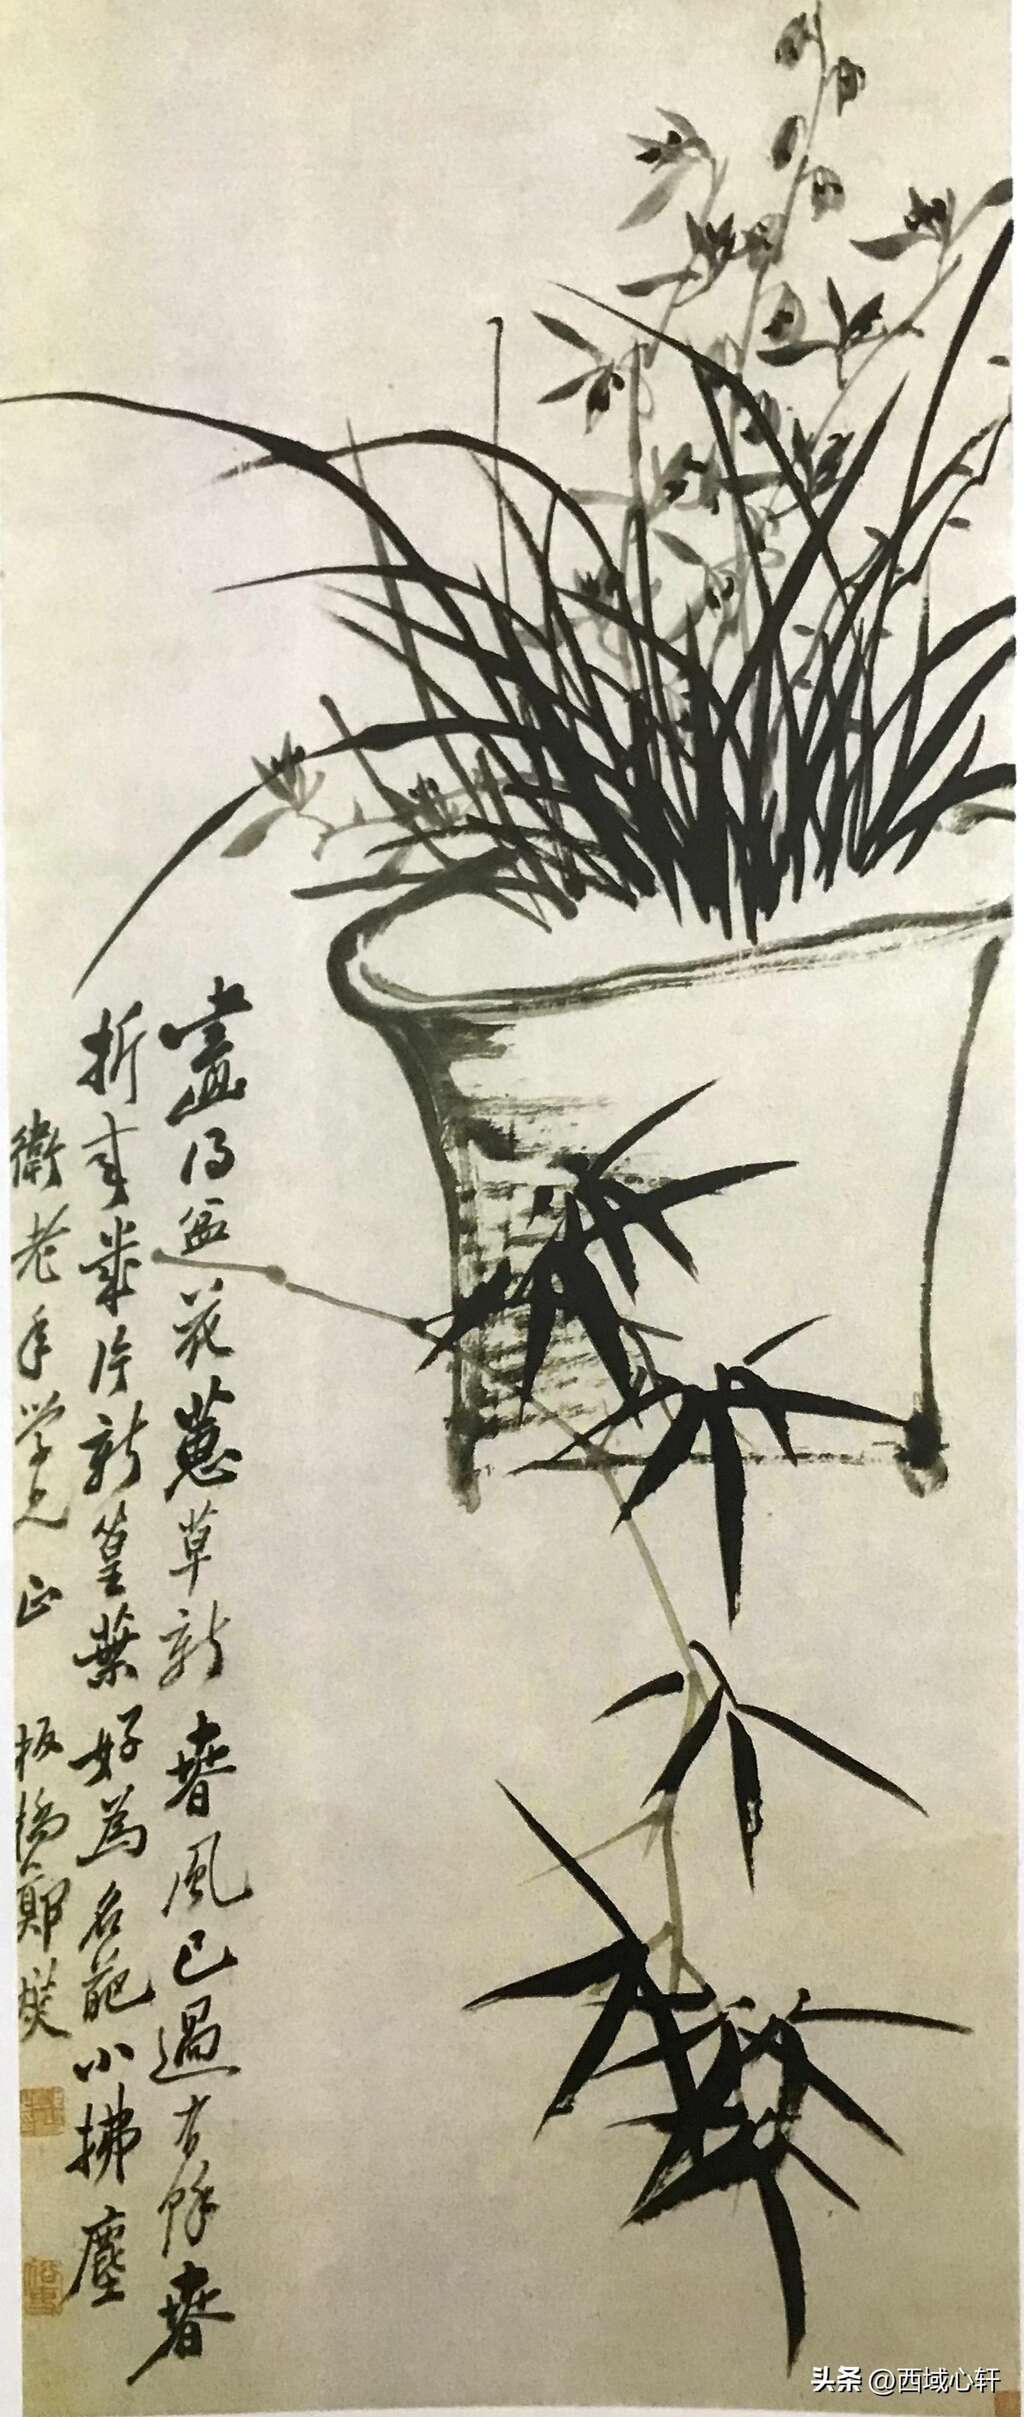 畫得盆花蕙草新春風已過有餘春
折來幾片新篁葉好為名葩小拂塵
衛老年學兄正 板橋鄭燮
头条 @西域心轩